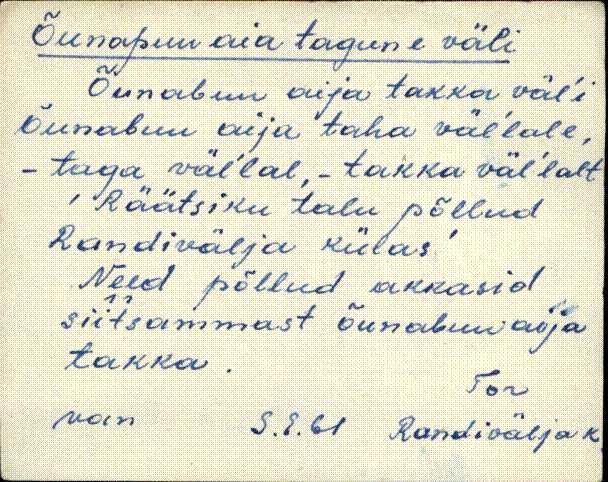 Õunapuu aia tagune väli
Õunabuu aija takka väl'i
Õunabuu aija taha väl'lale,
- taga väl'lal, - takka väl'lalt
'Räätsiku talu põllud
Randivälja külas'
Need põllud akkasid
siitsammast õunabuu aija
takka.
Tor
van S.E. 61 Randivälja k